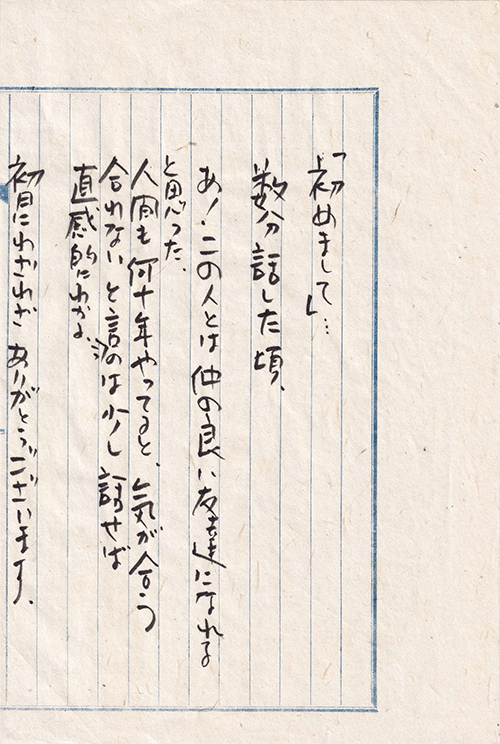 「初めまして」…
数分話した頃、
あ!この人とは仲の良い友達になれる
と思った、
人間も何十年やってると、気が合う
合わないと言うのは少し話せば
直感的にわかる、
初日にわざわざありがとうございます、